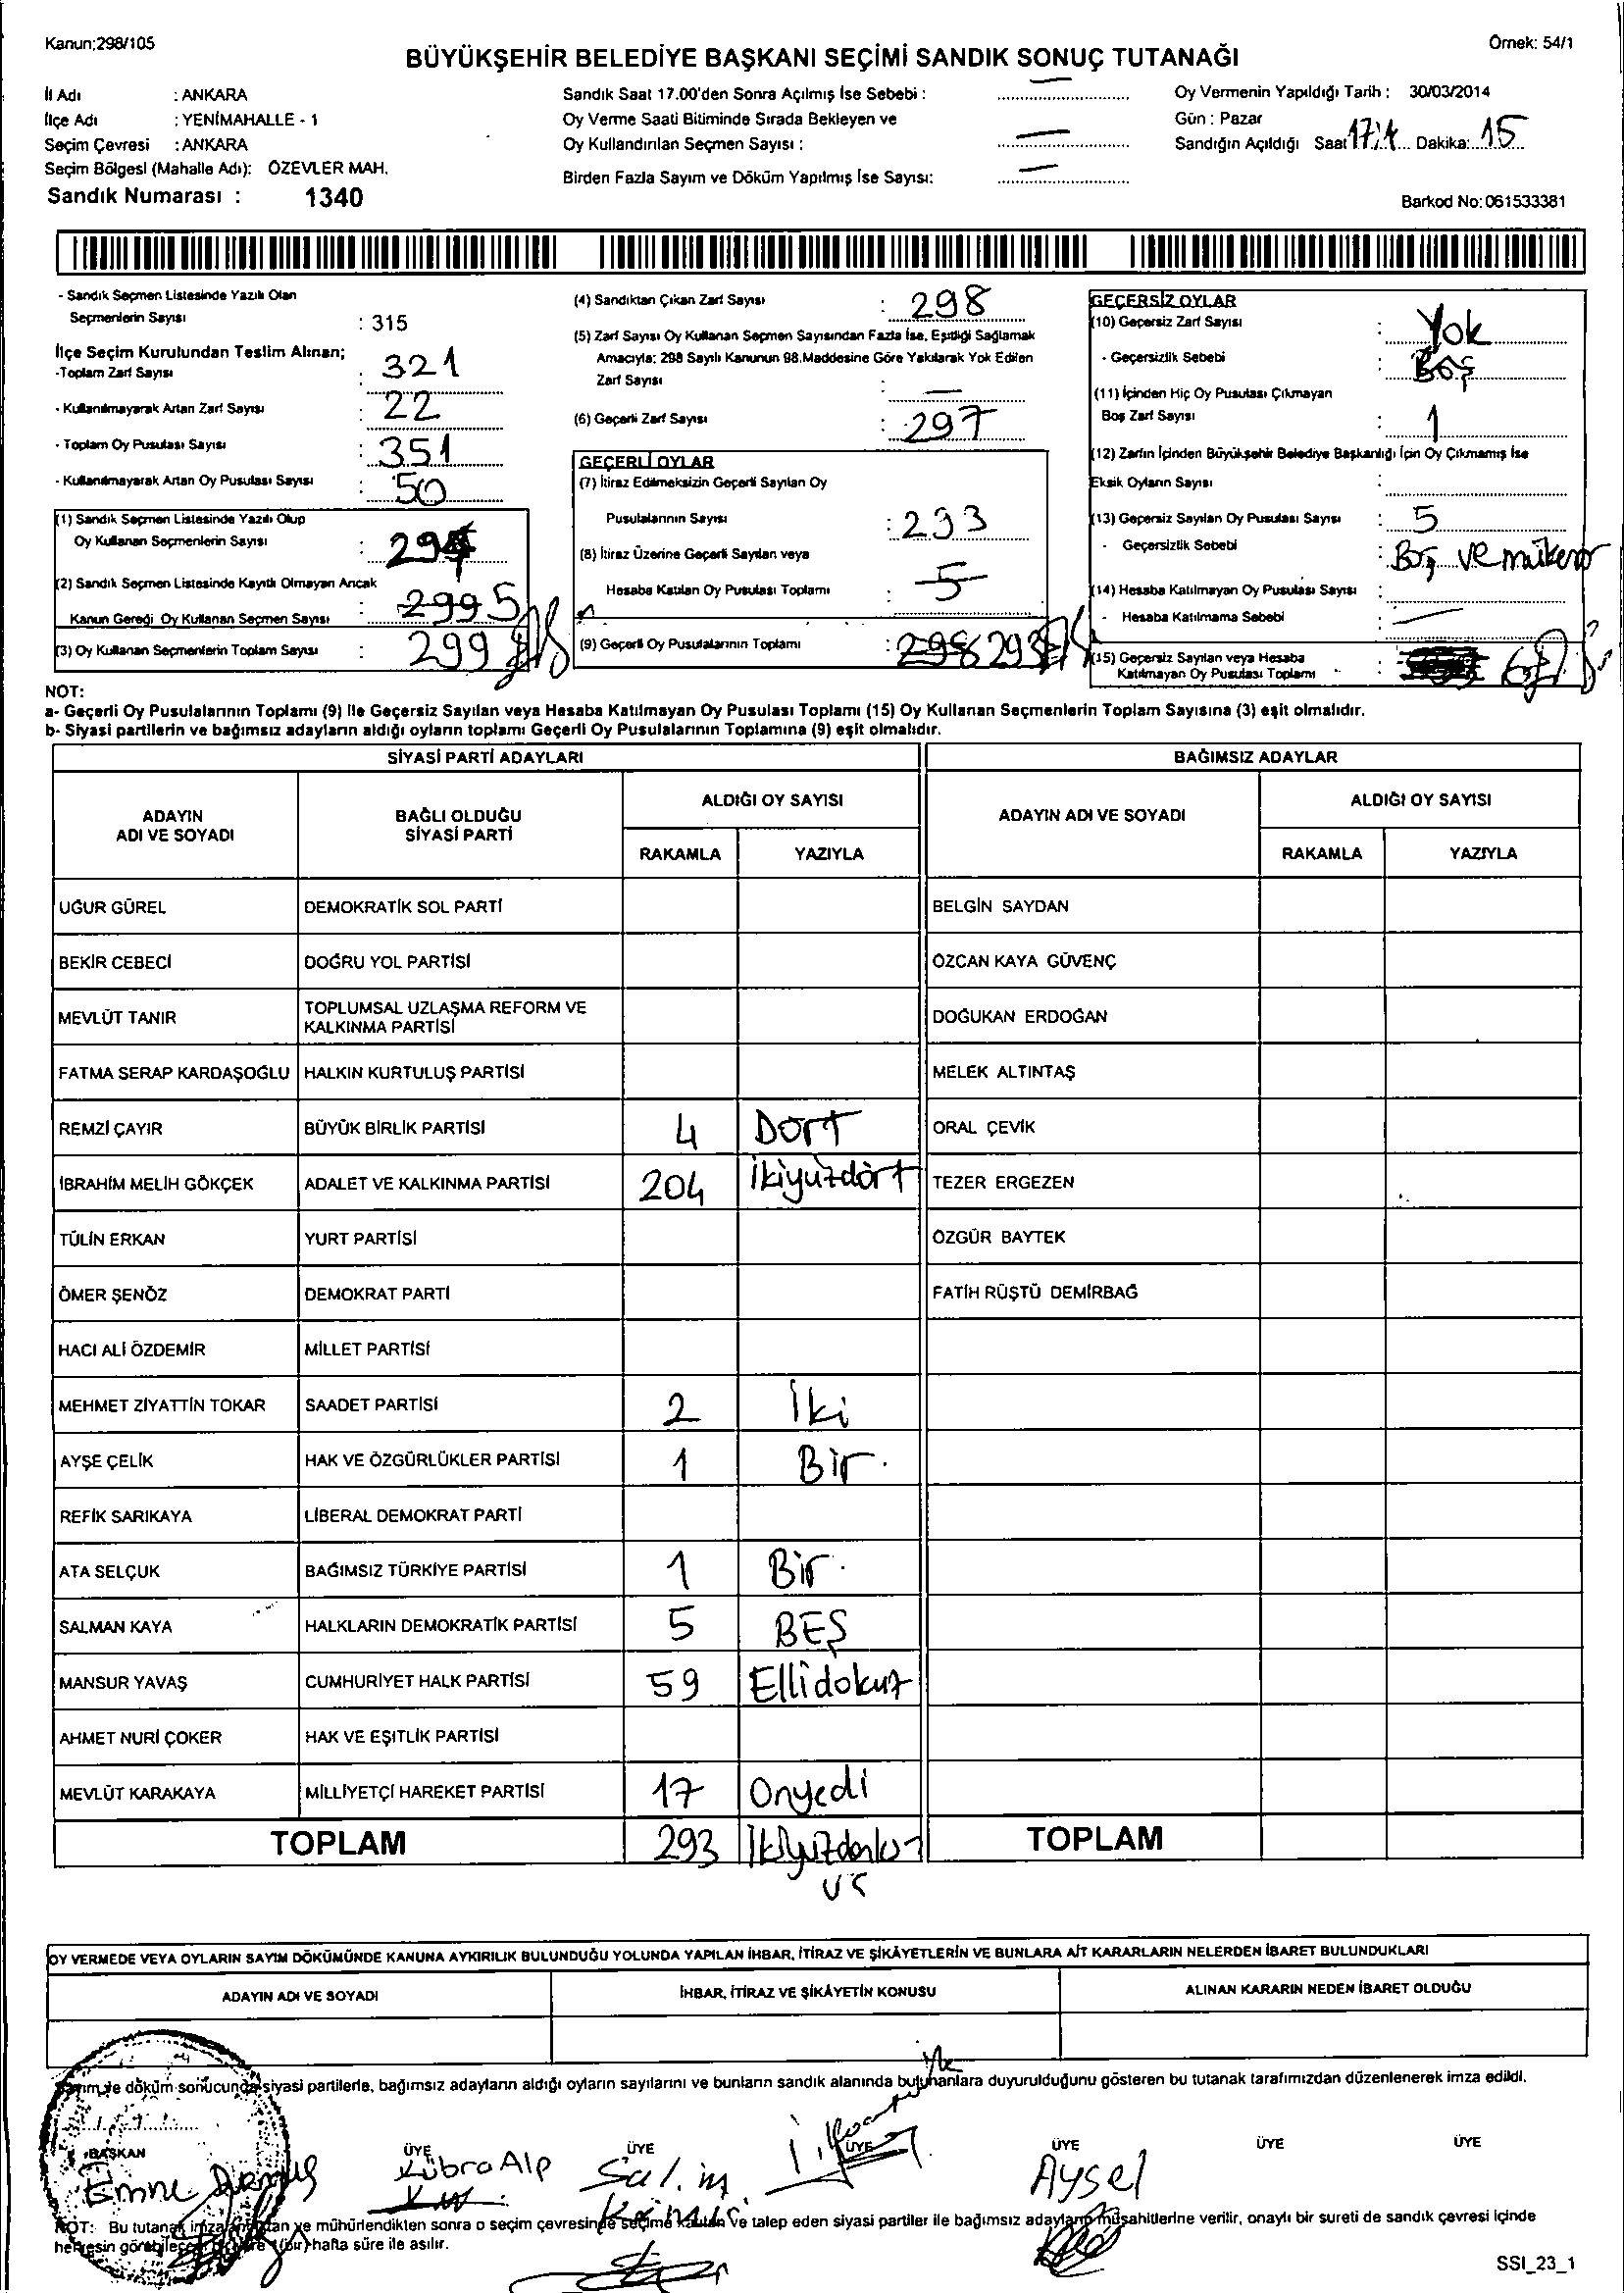 Kanun;298/105
Örnek: 54/1
BÜYÜKŞEHİR BELEDİYE BAŞKANI SEÇİMİ SANDIK SONUÇ TUTANAĞI
İl Adı : ANKARA
İlçe Adı : YENİMAHALLE - 1
Seçim Çevresi : ANKARA
Seçim Bölgesi (Mahalle Adı): ÖZEVLER MAH.
Sandık Numarası : 1340
Sandık Saat 17.00'den Sonra Açılmış İse Sebebi : —
Oy Verme Saati Bitiminde Sırada Bekleyen ve
Oy Kullandırılan Seçmen Sayısı : —
Birden Fazla Sayım ve Döküm Yapılmış İse Sayısı: —
Oy Vermenin Yapıldığı Tarih : 30/03/2014
Gün : Pazar
Sandığın Açıldığı Saat Dakika: 15
Barkod No: 061533381
- Sandık Seçmen Listesinde Yazılı Olan
Seçmenlerin Sayısı : 315
İlçe Seçim Kurulundan Teslim Alınan;
-Toplam Zarf Sayısı : 321
- Kullanılmayarak Artan Zarf Sayısı : 22
- Toplam Oy Pusulası Sayısı : 351
- Kullanılmayarak Artan Oy Pusulası Sayısı : 50
(1) Sandık Seçmen Listesinde Yazılı Olup
Oy Kullanan Seçmenlerin Sayısı :
(2) Sandık Seçmen Listesinde Kayıtlı Olmayan Ancak
Kanun Gereği Oy Kullanan Seçmen Sayısı : 299 5
(3) Oy Kullanan Seçmenlerin Toplam Sayısı : 299
(4) Sandıktan Çıkan Zarf Sayısı : 298
(5) Zarf Sayısı Oy Kullanan Seçmen Sayısından Fazla İse, Eşitliği Sağlamak
Amacıyla; 298 Sayılı Kanunun 98.Maddesine Göre Yakılarak Yok Edilen
Zarf Sayısı : —
(6) Geçerli Zarf Sayısı : 297
GEÇERLİ OYLAR
(7) İtiraz Edilmeksizin Geçerli Sayılan Oy
Pusulalarının Sayısı : 293
(8) İtiraz Üzerine Geçerli Sayılan veya
Hesaba Katılan Oy Pusulası Toplamı : 5
(9) Geçerli Oy Pusulalarının Toplamı : 298 293
GEÇERSİZ OYLAR
(10) Geçersiz Zarf Sayısı : Yok
- Geçersizlik Sebebi : Boş
(11) İçinden Hiç Oy Pusulası Çıkmayan
Boş Zarf Sayısı : 1
(12) Zarfın İçinden Büyükşehir Belediye Başkanlığı İçin Oy Çıkmamış İse
Eksik Oyların Sayısı :
(13) Geçersiz Sayılan Oy Pusulası Sayısı : 5
- Geçersizlik Sebebi : Boş ve mükerer
(14) Hesaba Katılmayan Oy Pusulası Sayısı :
- Hesaba Katılmama Sebebi : —
(15) Geçersiz Sayılan veya Hesaba
Katılmayan Oy Pusulası Toplamı : 6
NOT:
a- Geçerli Oy Pusulalarının Toplamı (9) İle Geçersiz Sayılan veya Hesaba Katılmayan Oy Pusulası Toplamı (15) Oy Kullanan Seçmenlerin Toplam Sayısına (3) eşit olmalıdır.
b- Siyasi partilerin ve bağımsız adayların aldığı oyların toplamı Geçerli Oy Pusulalarının Toplamına (9) eşit olmalıdır.
SİYASİ PARTİ ADAYLARI
BAĞIMSIZ ADAYLAR
ADAYIN
ADI VE SOYADI
BAĞLI OLDUĞU
SİYASİ PARTİ
ALDIĞI OY SAYISI
RAKAMLA YAZIYLA
ADAYIN ADI VE SOYADI
ALDIĞI OY SAYISI
RAKAMLA YAZIYLA
UĞUR GÜREL DEMOKRATİK SOL PARTİ BELGİN SAYDAN
BEKİR CEBECİ DOĞRU YOL PARTİSİ ÖZCAN KAYA GÜVENÇ
MEVLÜT TANIR TOPLUMSAL UZLAŞMA REFORM VE
KALKINMA PARTİSİ DOĞUKAN ERDOĞAN
FATMA SERAP KARDAŞOĞLU HALKIN KURTULUŞ PARTİSİ MELEK ALTINTAŞ
REMZİ ÇAYIR BÜYÜK BİRLİK PARTİSİ 4 DORT ORAL ÇEVİK
İBRAHİM MELİH GÖKÇEK ADALET VE KALKINMA PARTİSİ 204 İkiyüzdört TEZER ERGEZEN
TÜLİN ERKAN YURT PARTİSİ ÖZGÜR BAYTEK
ÖMER ŞENÖZ DEMOKRAT PARTİ FATİH RÜŞTÜ DEMİRBAĞ
HACI ALİ ÖZDEMİR MİLLET PARTİSİ
MEHMET ZİYATTİN TOKAR SAADET PARTİSİ 2 İki
AYŞE ÇELİK HAK VE ÖZGÜRLÜKLER PARTİSİ 1 Bir.
REFİK SARIKAYA LİBERAL DEMOKRAT PARTİ
ATA SELÇUK BAĞIMSIZ TÜRKİYE PARTİSİ 1 Bir.
SALMAN KAYA HALKLARIN DEMOKRATİK PARTİSİ 5 BEŞ
MANSUR YAVAŞ CUMHURİYET HALK PARTİSİ 59 Ellidokuz
AHMET NURİ ÇOKER HAK VE EŞİTLİK PARTİSİ
MEVLÜT KARAKAYA MİLLİYETÇİ HAREKET PARTİSİ 17 Onyedi
TOPLAM 293 TOPLAM
OY VERMEDE VEYA OYLARIN SAYIM DÖKÜMÜNDE KANUNA AYKIRILIK BULUNDUĞU YOLUNDA YAPILAN İHBAR, İTİRAZ VE ŞİKÂYETLERİN VE BUNLARA AİT KARARLARIN NELERDEN İBARET BULUNDUKLARI
ADAYIN ADI VE SOYADI İHBAR, İTİRAZ VE ŞİKÂYETİN KONUSU ALINAN KARARIN NEDEN İBARET OLDUĞU
ve döküm sonucunda siyasi partilerle, bağımsız adayların aldığı oyların sayılarını ve bunların sandık alanında bulunanlara duyurulduğunu gösteren bu tutanak tarafımızdan düzenlenerek imza edildi.
BAŞKAN ÜYE ÜYE ÜYE ÜYE ÜYE ÜYE
Kübra Alp Salim Aysel
NOT: Bu tutanak ve mühürlendikten sonra o seçim çevresinde seçime katılan ve talep eden siyasi partiler ile bağımsız adayların müşahitlerine verilir, onaylı bir sureti de sandık çevresi içinde
herkesin görebileceği (bir) hafta süre ile asılır.
SSI_23_1